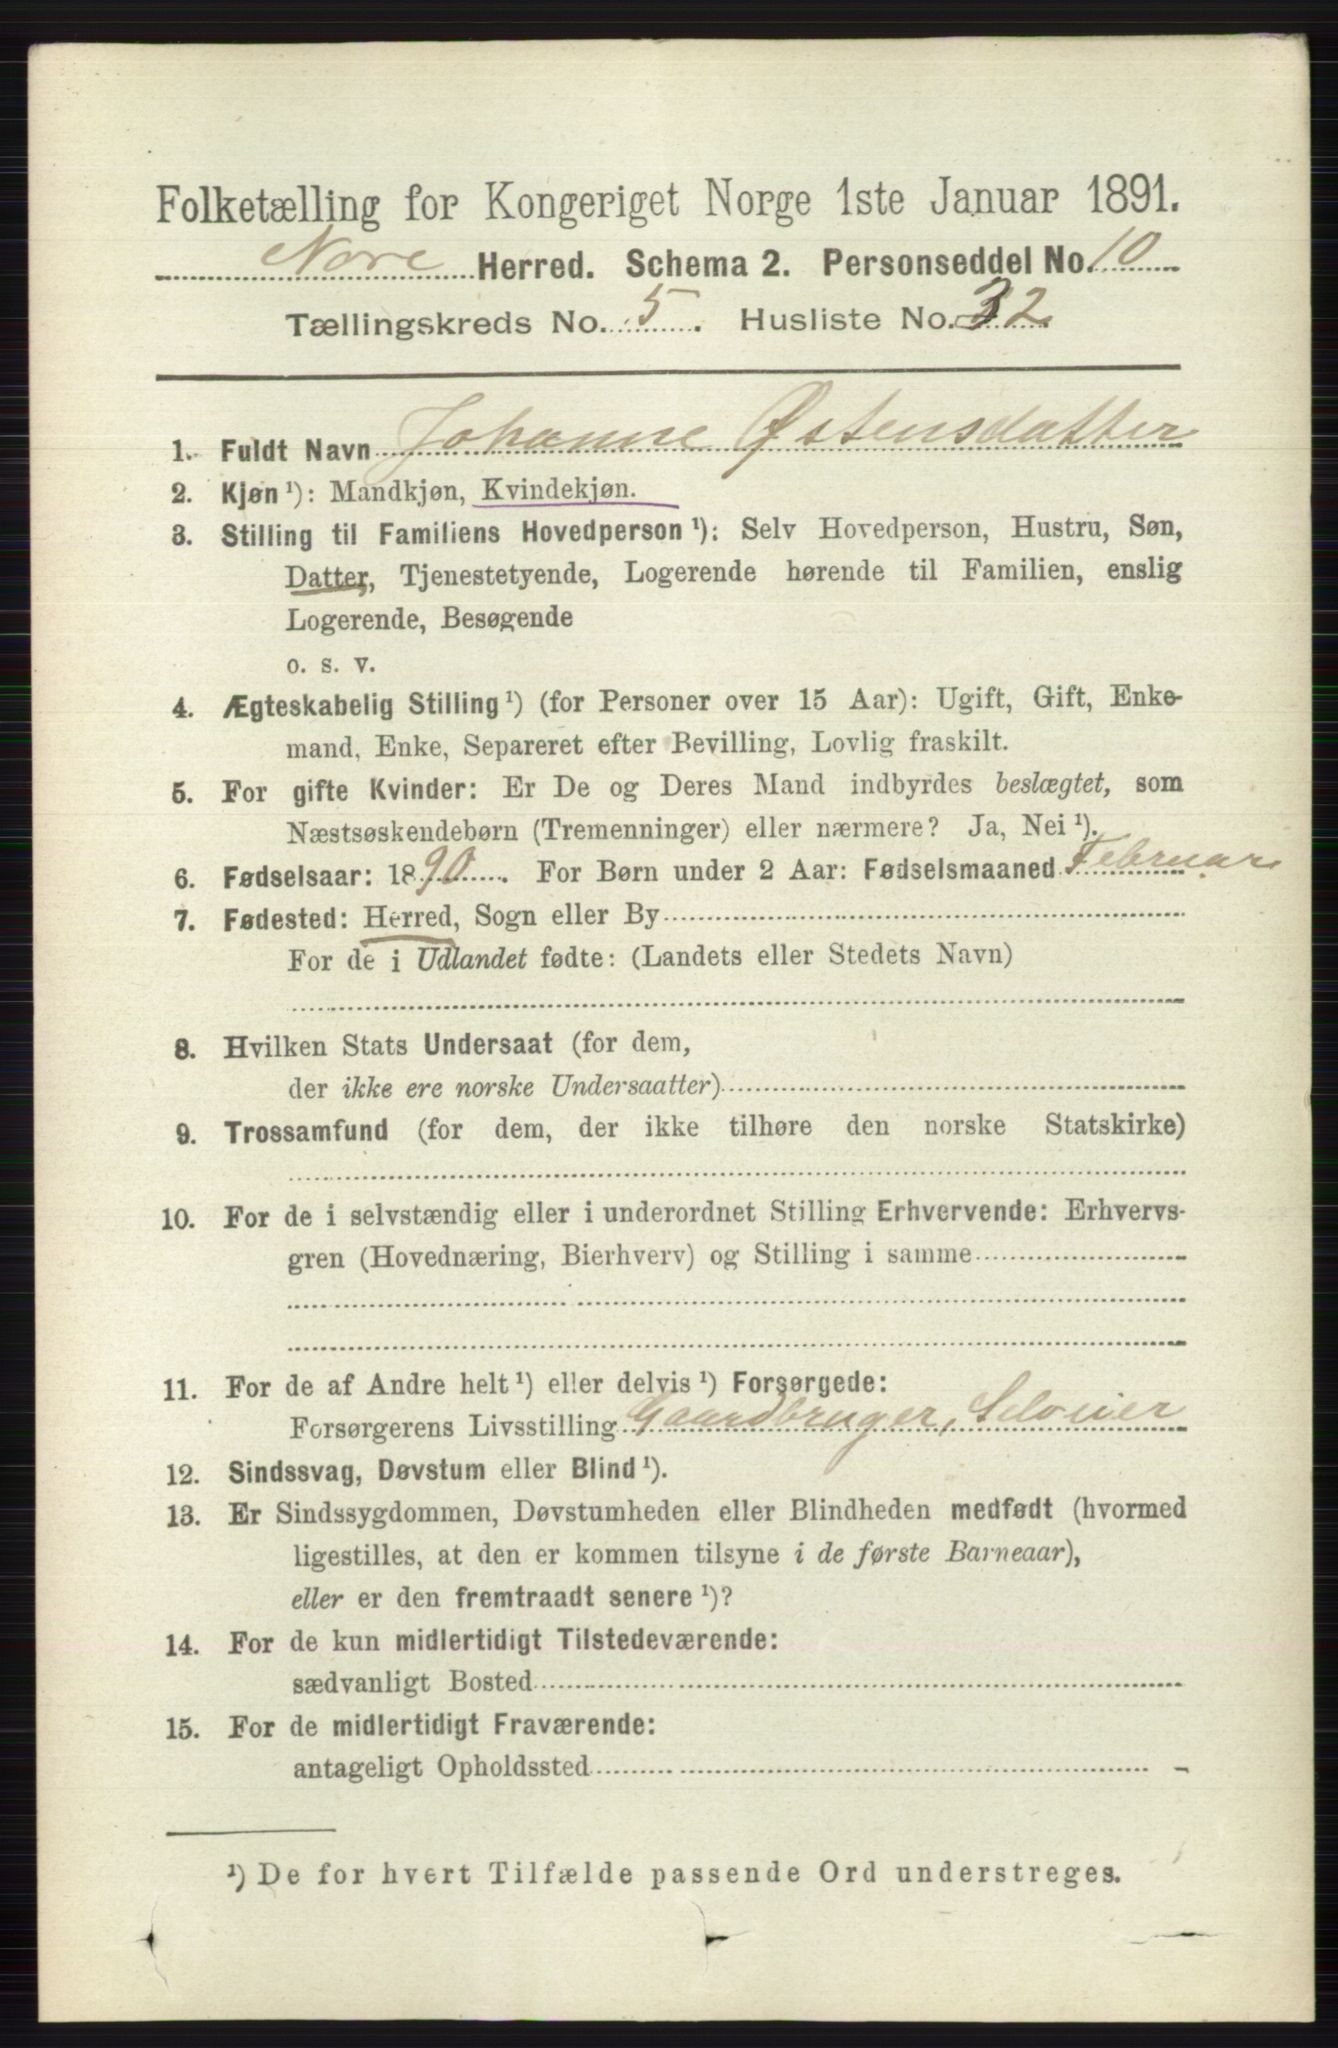 Folketælling for Kongeriget Norge 1ste Januar 1891.
Nore Herred. Schema 2. Personseddel No. 10
Tællingskreds No. 5. Husliste No. 32
1. Fuldt Navn Johanne Østensdatter
2. Kjøn ¹): Mandkjøn, Kvindekjøn.
3. Stilling til Familiens Hovedperson ¹): Selv Hovedperson, Hustru, Søn,
Datter, Tjenestetyende, Logerende hørende til Familien, enslig
Logerende, Besøgende
o. s. v.
4. Ægteskabelig Stilling ¹) (for Personer over 15 Aar): Ugift, Gift, Enke-
mand, Enke, Separeret efter Bevilling, Lovlig fraskilt.
5. For gifte Kvinder: Er De og Deres Mand indbyrdes beslægtet, som
Næstsøskendebørn (Tremenninger) eller nærmere? Ja, Nei ¹).
6. Fødselsaar: 1890. For Børn under 2 Aar: Fødselsmaaned Februar
7. Fødested: Herred, Sogn eller By
For de i Udlandet fødte: (Landets eller Stedets Navn)
8. Hvilken Stats Undersaat (for dem,
der ikke ere norske Undersaatter)
9. Trossamfund (for dem, der ikke tilhøre den norske Statskirke)
10. For de i selvstændig eller i underordnet Stilling Erhvervende: Erhvervs-
gren (Hovednæring, Bierhverv) og Stilling i samme
11. For de af Andre helt ¹) eller delvis ¹) Forsørgede:
Forsørgerens Livsstilling Gaardbruger, Seloeier
12. Sindssvag, Døvstum eller Blind ¹).
13. Er Sindssygdommen, Døvstumheden eller Blindheden medfødt (hvormed
ligestilles, at den er kommen tilsyne i de første Barneaar),
eller er den fremtraadt senere ¹)?
14. For de kun midlertidigt Tilstedeværende:
sædvanligt Bosted
15. For de midlertidigt Fraværende:
antageligt Opholdssted
¹) De for hvert Tilfælde passende Ord understreges.